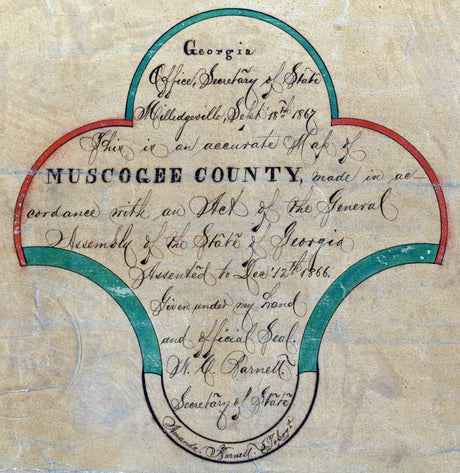 Georgia
Office, Secretary of State
Milledgeville, Sept 18th 1867
This is an accurate Map of
MUSCOGEE COUNTY, made in ac-
cordance with an Act of the General
Assembly of the State of Georgia
Assented to Dec 12th 1866.
Given under my hand
and official Seal.
N. C. Barnett
Secretary of State
Amanda. Barnett.